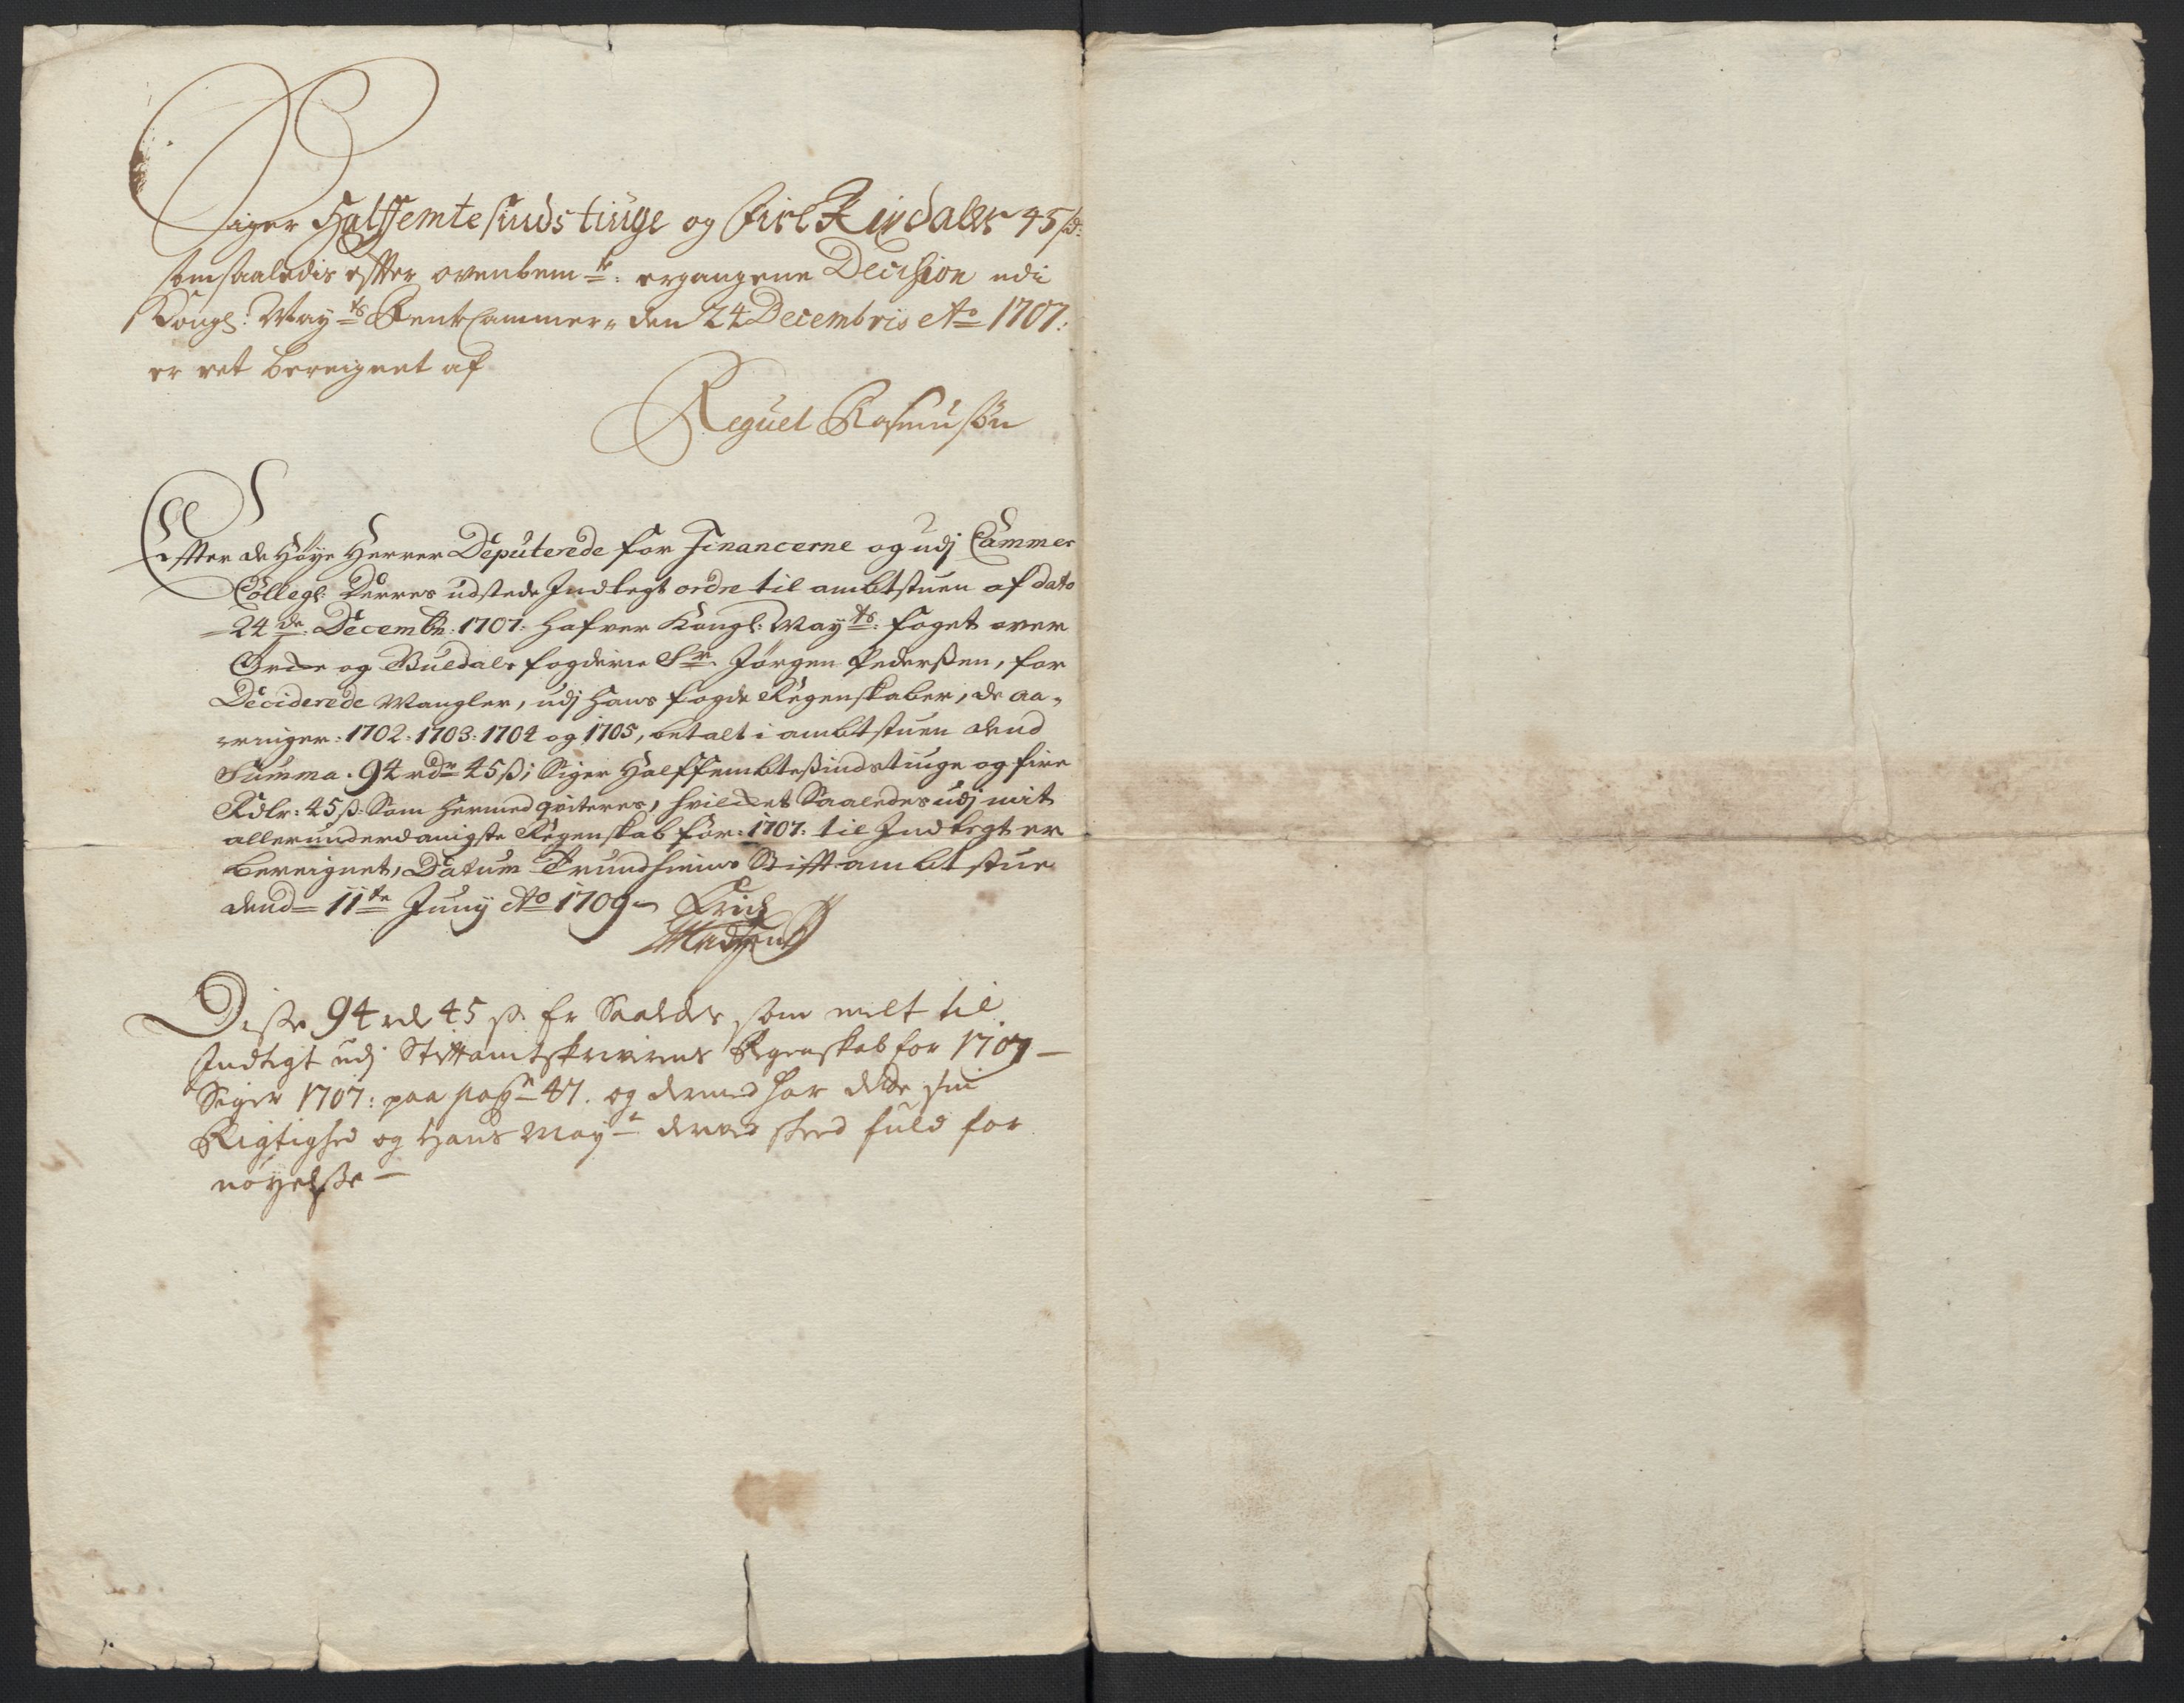 Siger Halffemtesinds tiuge og fire Rixdaler 45 sk:
som saaledis effter ovenbemte: ergangene Decision udi
Kongl: Mayts RentCammer, den 24 Decembris Ao 1707:
er ret bereignet af
Reguel Rasmussøn
Effter de Høye Herrer Deputerede for Financerne og udj Cammer
Collegl: Derres udstede Indtegt ordre til ambtstuen af dato
24de: Decembr: 1707: hafver Kongl: Mayts: foget over
og Buldals fogderie Sr. Jørgen Pederßen, for
Deciderede Mangler, udj hans fogde Regenskaber, de aa-
ringer: 1702: 1703: 1704 og 1705, betalt i ambtstuen dend
Summa. 94 rdr 45 ß; Siger Halffembteßindstiuge og fire
Rdlr: 45 ß: Som hermed qviteres, hvilcket Saaledes udj mit
allerunderdanigste Regenskab for: 1707: til Indtegt er
bereignet, Datum Trundhiems Stifftambtstue
dend 11te Junij Ao 1709
Erich
Madßen
Diße 94 rd 45 ß. Er Saaledes som melt til
Indtegt udj Stiftamtskriverens Regenskab for 1707
Siger 1707: paa pagn 47. og dermed har dette sin
Rigtighed og Hans Mayt derved skeed fuld for
nøyelße